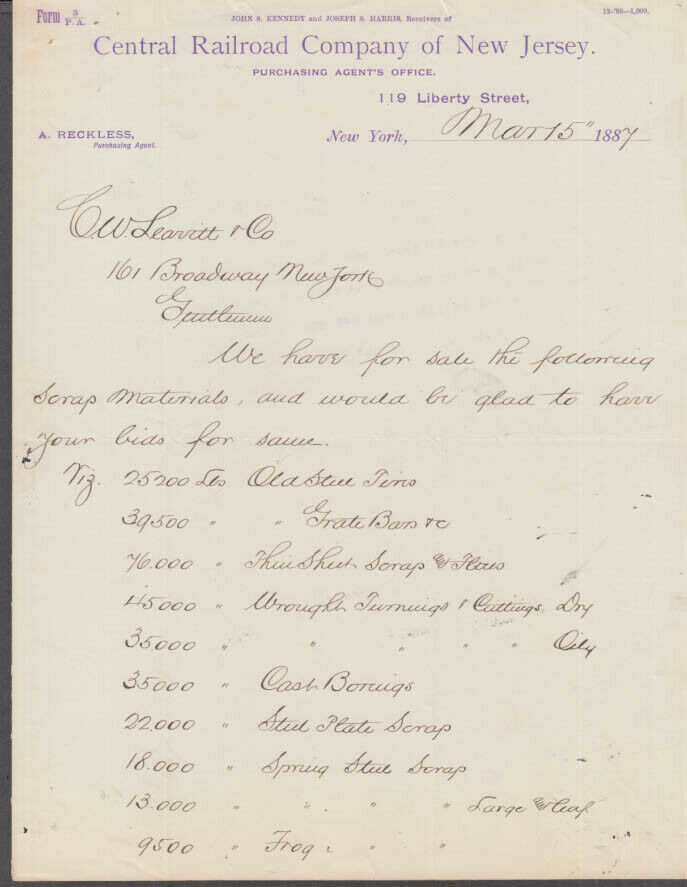 Form 3 P. A.
12-'86-1,000.
JOHN S. KENNEDY and JOSEPH S. HARRIS, Receivers of
Central Railroad Company of New Jersey.
PURCHASING AGENT'S OFFICE.
119 Liberty Street,
A. RECKLESS,
Purchasing Agent.
New York, Mar 15" 1887
C. W. Leavitt & Co
161 Broadway New York
Gentlemen
We have for sale the following
Scrap Materials, and would be glad to have
your bids for same.
Viz. 25200 Lbs Old Steel Tires
39,500 " " Grate Bars &c
76.000 " Thin Sheet Scrap and Flues
45,000 " Wrought Turnings & Cuttings Dry
35,000 " " " " " Oily
35000 " Cast Borings
22,000 " Steel Plate Scrap
18.000 " Spring Steel Scrap
13.000 " " " " Large and Leaf
9500 " Frog " " "